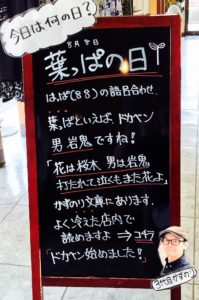 今日は何の日?
8月8日
葉っぱの日
はっぱ(88)の語呂合わせ。
葉っぱといえば、ドカベン
男岩鬼ですね!
「花は桜木 男は岩鬼
打たれて泣くもまた花よ」
かずのり文庫にあります。
よく冷えた店内で
読めますよ → コチラ
「ドカベン始めました!」
3代目かずのり